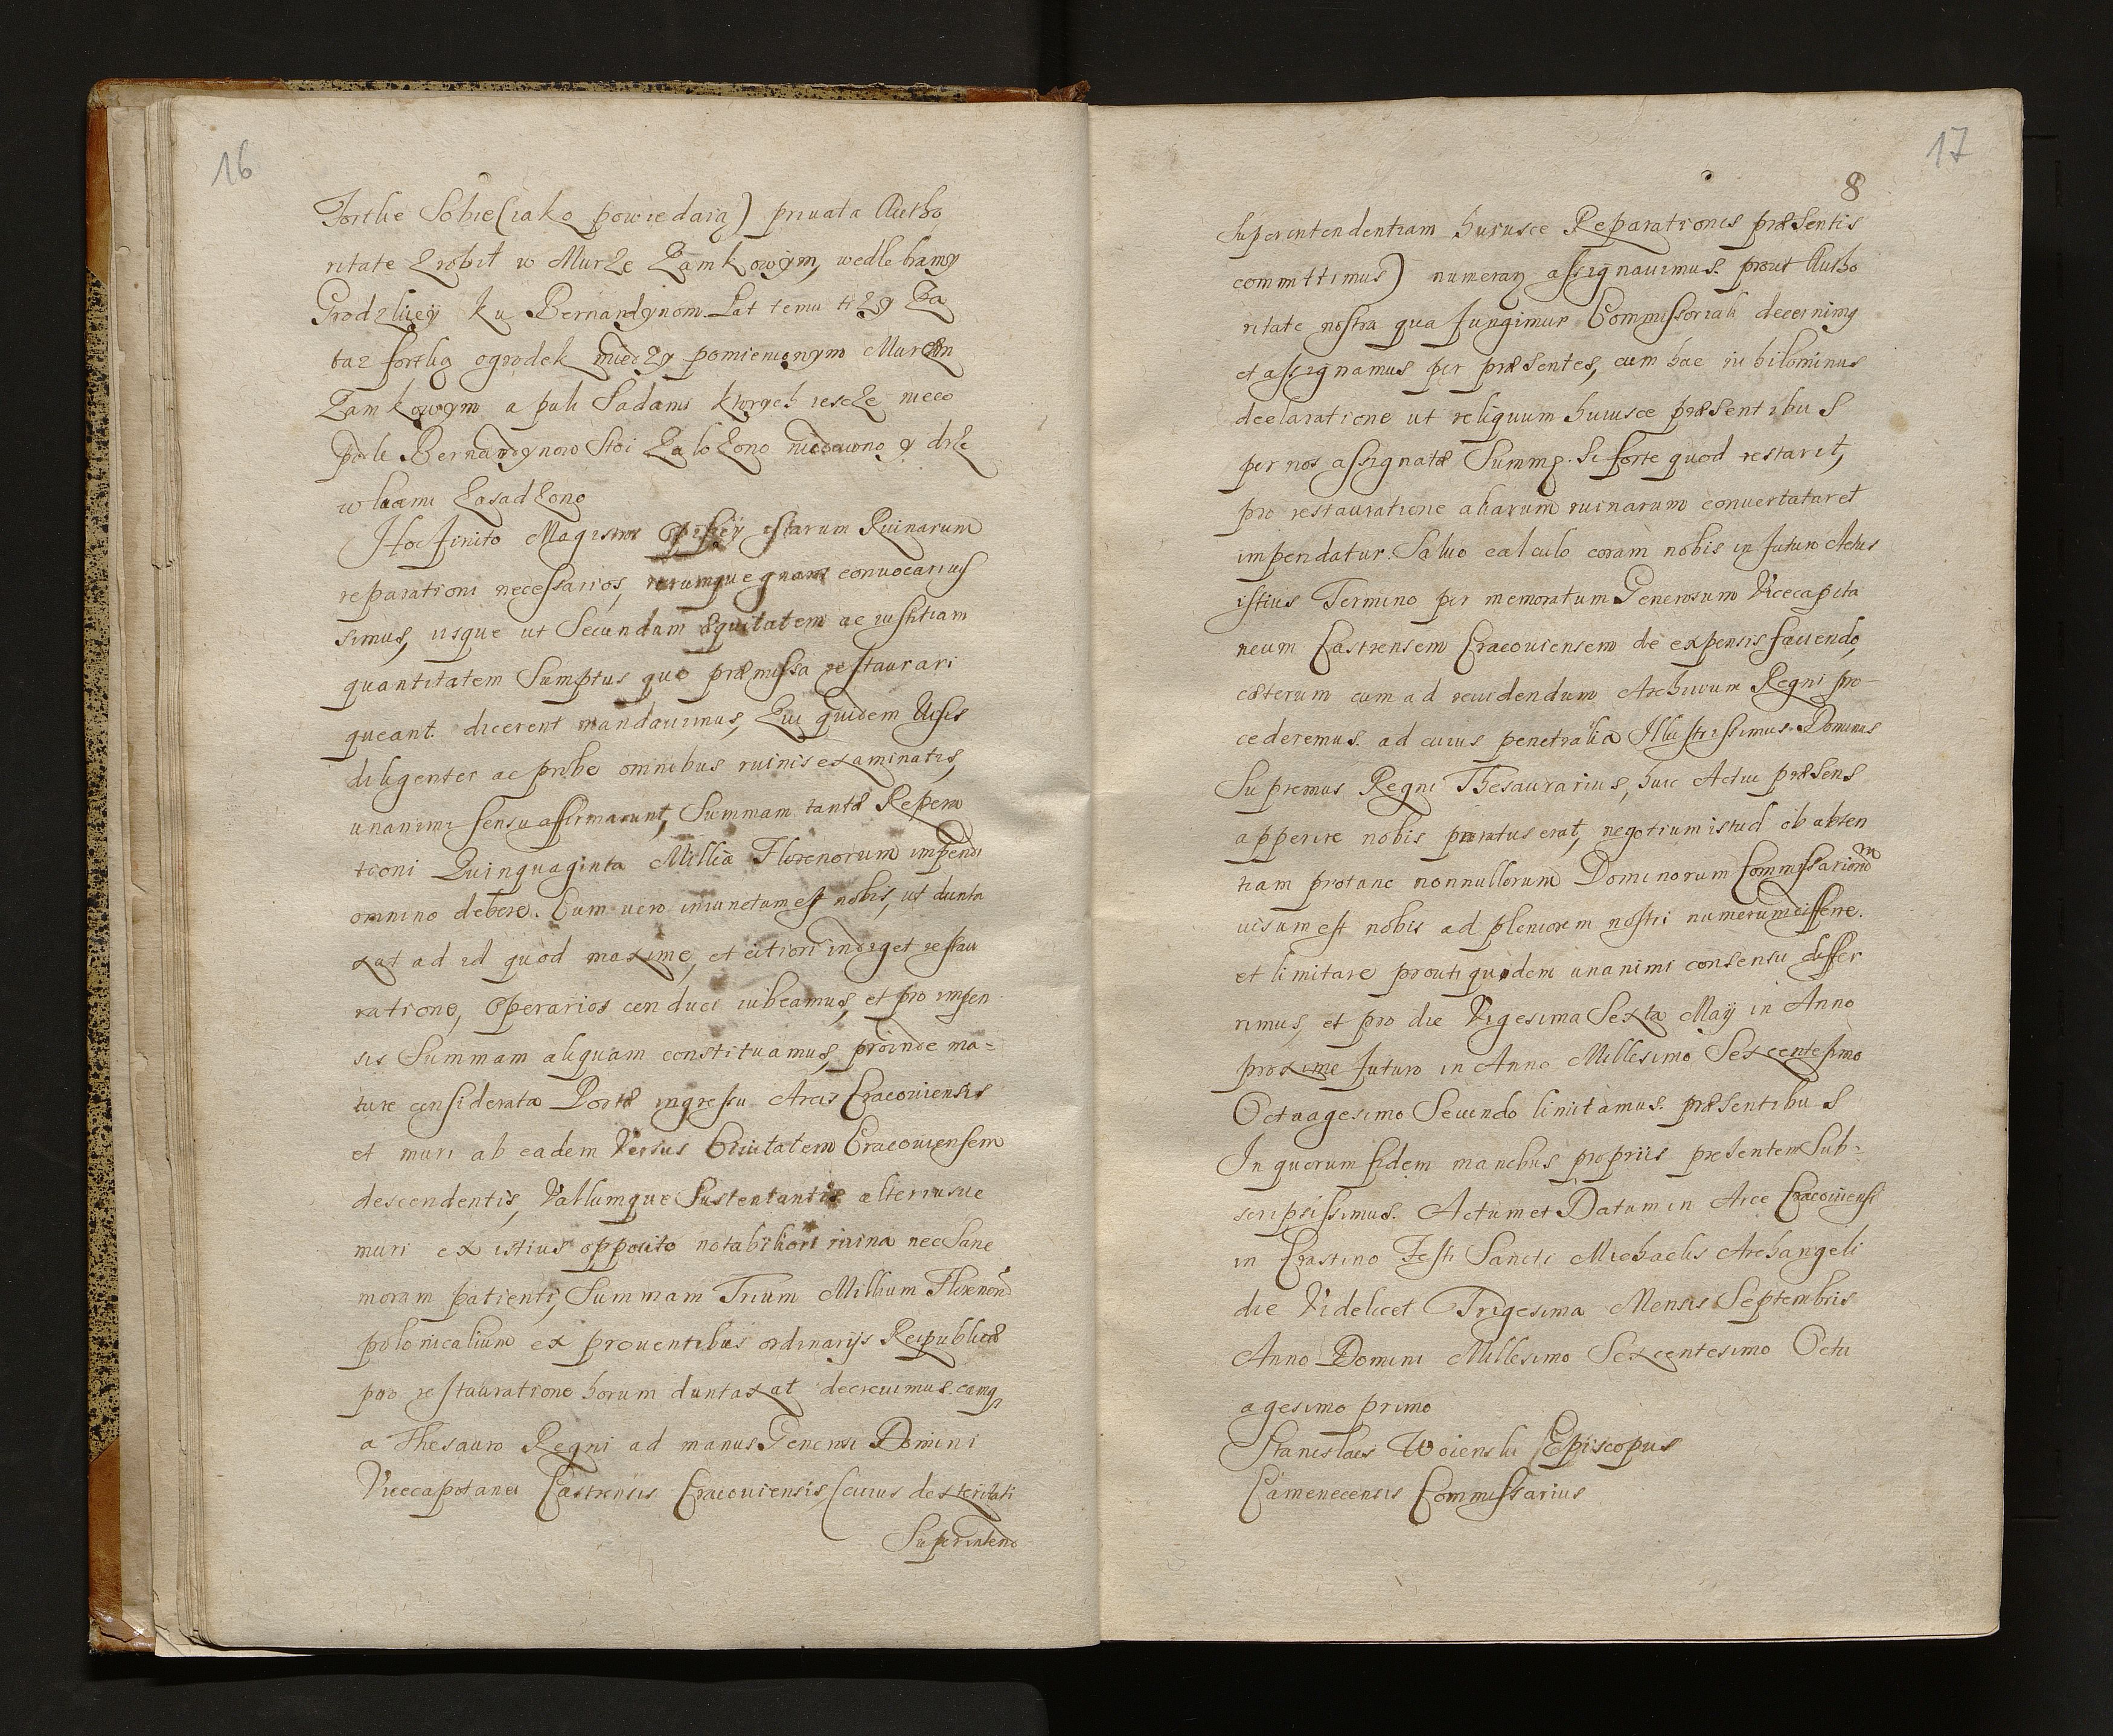 16
Fortke Sobie (iako powiedaią) priuata Autho
ritate Zrobił w Murze Zamkowym, wedle bramy
Grodzkiey ku Bernardynom. Lat temu trzy Za
taz fortką ogrodek między pomienionym Murem
Zamkowym a pali Sadami ktorych iescze nieco
pole Bernardynow Stoi Zalozono niedawno y drze
wkami Zasadzono
Hoc finito Magistros istarum Ruinarum
reparationi necessarios, rerumque gnaros conuocauius
simus, iisque ut Secundum æquitatem ac iustitiam
quantitatem Sumptus quo præmissa restaurari
queant. dicerent mandauimus, Qui quidem Visis
diligenter ac probe omnibus ruinis examinatis,
unanimi sensu affirmarunt, Summam tantæ Repera
tioni Quinquaginta Millia Florenorum impendi
omnino debere. Cum uero iniunctum est nobis, ut dunta
xat ad id quod maxime, et citiori indiget restau
ratione, Operarios conduci iubeamus, et pro impen
sis Summam aliquam constituamus, proinde ma=
ture considerata Portæ ingressu Arcis Cracouiensis
et muri ab eadem Versus Ciuitatem Cracouiensem
descendentis, Vallumque Sustentantis alteriusue
muri ex istius opposito notabiliori ruina nec Sane
moram patienti, Summam Trium Millium Florenorũ
polonicalium ex prouentibus ordinarijs Reipublicæ
pro restauratione horum duntaxat decreuimus. eamq
a Thesauro Regni ad manus Generosi Domini
Vicecapitanei Castrensis Cracouiensis, (cuius dexteritati
Superintend
17
8
Superintendentiam huiusce Reparationis præsentis
committimus) numeranȝ assignauimus. prout Autho
ritate nostra qua fungimur Commissoriali decernimꝰ
et assignamus per præsentes, cum hac nihilominus
declaratione ut reliquum huiusce præsentibus
per nos assignatæ Summæ. Si forte quod restarit,
pro restauratione aliarum ruinarum conuertatur et
impendatur. Saluo calculo coram nobis in futuro Actus
istius Termino per memoratum Generosum Vicecapita
neum Castrensem Cracouiensem de expensis faciendo,
cæterum cum ad reuidendum Archiuum Regni pro-
cederemus. ad cuius penetralia Illustrissimus Dominus
Supremus Regni Thesaurarius, huic Actui præsens
apperire nobis paratus erat, negotium istud ob absen
tiam protunc nonnullorum Dominorum Commissariorum
uisum est nobis ad pleniorem nostri numerum differre.
et limitare prouti quidem unanimi consensu differ
rimus, et pro die Vigesima Sexta May in Anno
proxime futuro in Anno Millesimo Sexcentesimo
Octuagesimo Secundo limitamus. præsentibus
In quorum fidem manibus propriis præsentem Sub=
scripsissimus. Actum et Datum in Arce Cracouiensi
in Crastino Festi Sancti Michaelis Archangeli
die Videlicet Trigesima Mensis Septembris
Anno Domini Millesimo Sexcentesimo Octu
agesimo primo
Stanislaus Woienski Episcopus
Camenecensis Commissarius